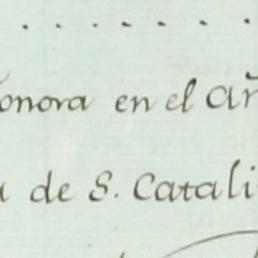 onora en el añ
a de S. Catali